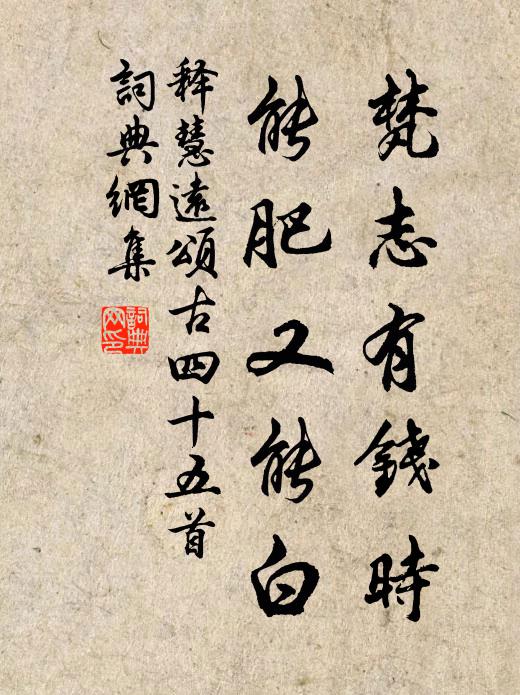 梵志有錢時
能肥又能白
释慧遠頌古四十五首
詞典網集
詞典网印